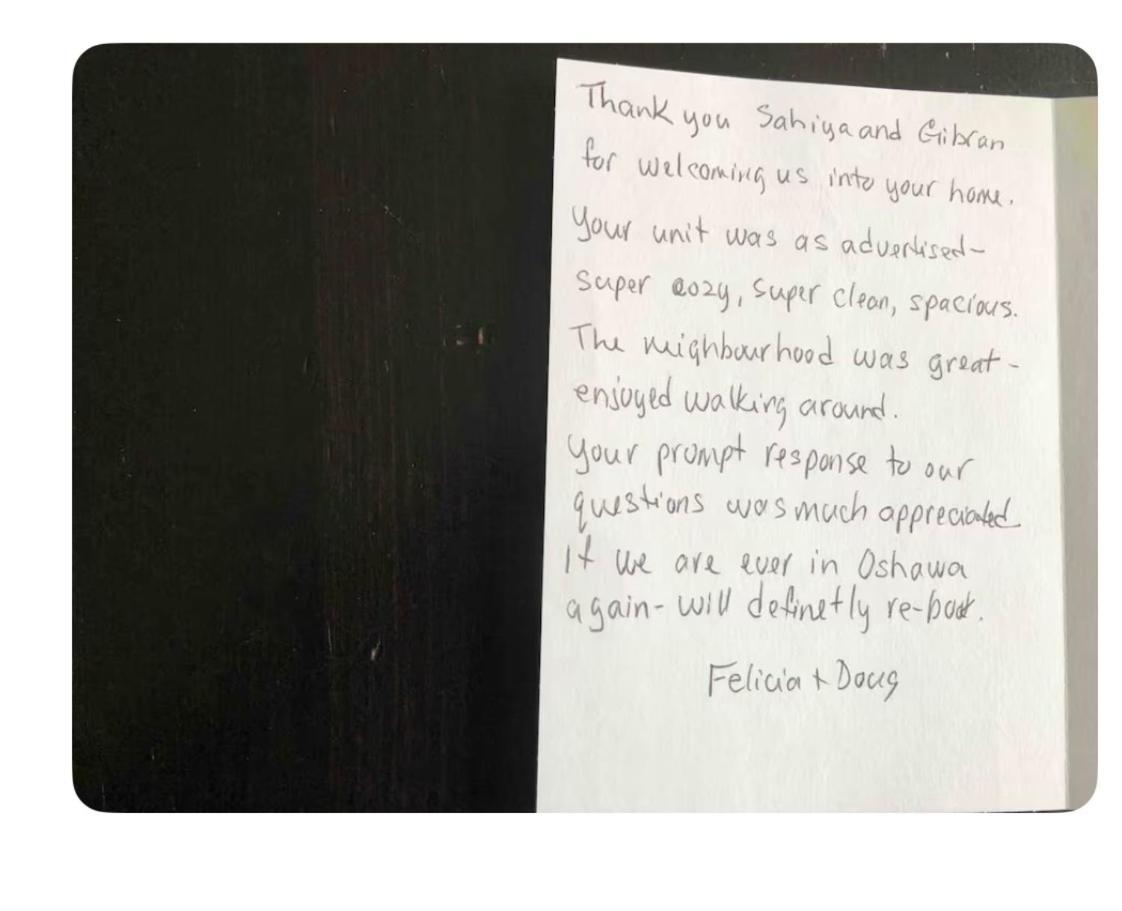 Thank you Sahiya and Gibran
for welcoming us into your home.
Your unit was as advertised-
super cozy, super clean, spacious.
The neighbourhood was great-
enjoyed walking around.
Your prompt response to our
questions was much appreciated
If we are ever in Oshawa
again- will definetly re-book.
Felicia + Doug